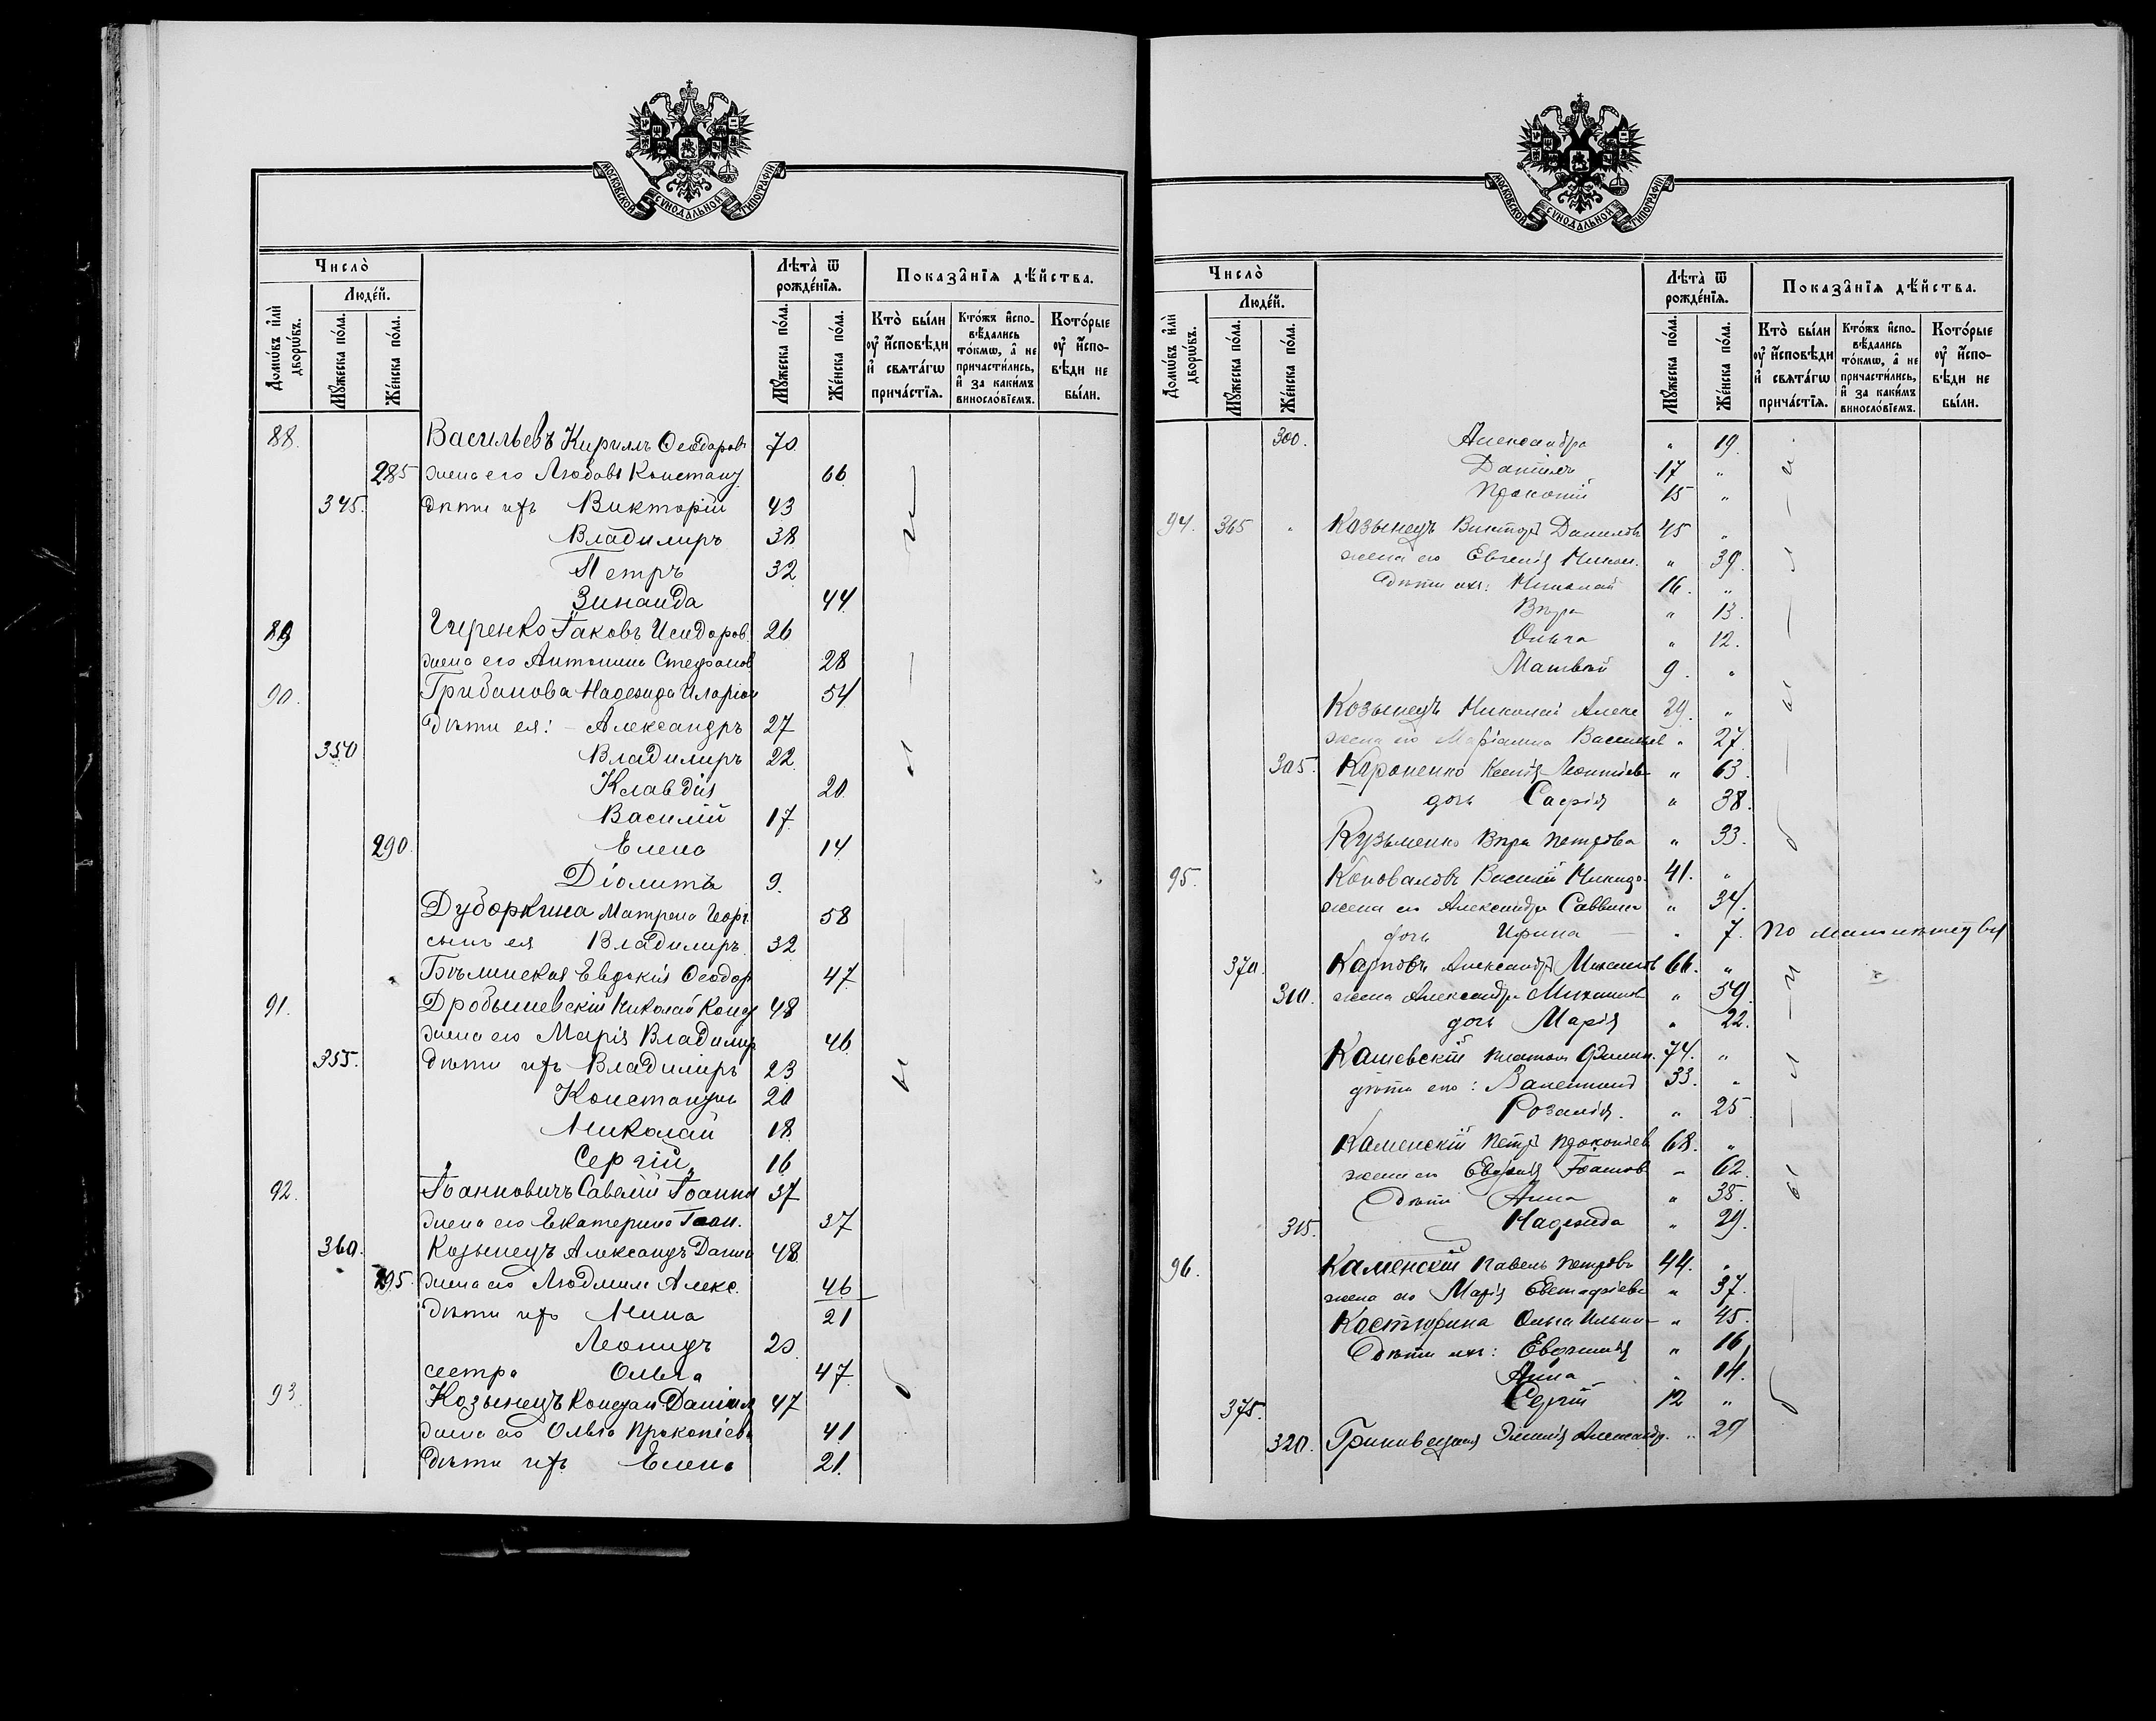 МОСКОВСКОЙ СѴНОДАЛЬНОЙ ТИПОГРАФІИ
Число̀
Люде́й.
Домѡ́въ и҆лѝ дворѡ́въ.
Мꙋ́жеска по́ла.
Же́нска по́ла.
Лѣ́та ѿ рожде́нїѧ.
Мꙋ́жеска по́ла.
Же́нска по́ла.
Показа̂нїѧ дѣ́йства.
Кто̀ бы́ли ᲂу҆ и҆́сповѣди и҆ свѧта́гѡ прича́стїѧ.
Кто́жъ и҆спо-вѣ́дались то́кмѡ, а҆ не причасти́лись, и҆ за каки́мъ винносло́вїемъ.
Кото́рые ᲂу҆ и҆́спо-вѣди не бы́ли.
88. Васильевъ Кириллъ Ѳеодоров 70
285 жена его Любовь Констант 66
345. дѣти ихъ Викторій 43
Владимиръ 38
Петръ 32
Зинаида 44
89 Іаковъ Исидоров. 26
жена его Антонина Стефанов 28
90. Грибанова Надежда Иларіон 54
дѣти ея: - Александръ 27
350 Владимиръ 22
Клавдія 20
Василій 17
290. Елена 14
9.
Дуборкина Матрона Георг. 58
сынъ ея Владимиръ 32
Бѣлинская Евдокія Ѳеодор 47
91. Дробышевскій Николай Конд 48
жена его Марія Владимир 46
355. дѣти ихъ Владиміръ 23
Константинъ 20
Николай 18
Сергій 16
92. Іоанновичъ Савелій Іоанно 37
жена его Екатерина Іоан. 37
360. Козынецъ Александръ Данил 48
295. жена его Людмила Алекс. 46
дѣти ихъ Нина 21
Леонидъ 20
сестра Ольга 47
93 Козынецъ Даніил 47
жена его Ольга Прокопіева 41
дѣти ихъ Елена 21.
МОСКОВСКОЙ СѴНОДАЛЬНОЙ ТИПОГРАФІИ
Число̀
Люде́й.
Домѡ́въ и҆лѝ дворѡ́въ.
Мꙋ́жеска по́ла.
Же́нска по́ла.
Лѣ́та ѿ рожде́нїѧ.
Мꙋ́жеска по́ла.
Же́нска по́ла.
Показа̂нїѧ дѣ́йства.
Кто̀ бы́ли ᲂу҆ и҆́сповѣди и҆ свѧта́гѡ прича́стїѧ.
Кто́жъ и҆спо-вѣ́дались то́кмѡ, а҆ не причасти́лись, и҆ за каки́мъ винносло́вїемъ.
Кото́рые ᲂу҆ и҆́спо-вѣди не бы́ли.
300. Александра " 19.
Даніилъ 17 "
Прокопій 15 "
94. 365 " Козынецъ Викторъ Данилов 45 "
жена его Евгенія Никол. " 39.
дѣти ихъ: Николай 16. "
Вѣра " 13.
Ольга " 12.
Матвѣй 9. "
Козынецъ Николай Алекс 29. "
жена его Маріанна Васильев " 27.
305. Короненко Ксенія Леонтіев " 63.
дочь Софія " 38.
Кузьменко Вѣра Петрова " 33.
95. Коноваловъ Василій Никидо. 41. "
жена его Александра Саввина " 34.
дочь Ирина - " 7. По малолѣтству
370. Карповъ Александръ Михаилов 66. "
310. жена Александра Михаилов " 59.
дочь Марія " 22.
Кашевскій Платонъ Филип. 74. "
дѣти его: Валентинъ 33. "
Розалія. " 25
Каменскій Петръ Прокопіев 68. "
жена его Евдокія Іоанов " 62.
дѣти Анна " 35.
315. Надежда " 29.
96. Каменскій Павелъ Петровъ 44. "
жена его Марія Евстафіева " 37.
Костюрина Ольга Ильин " 45.
дѣти ихъ: Евгенія " 16
Анна " 14.
375. Сергій 12 "
320. Эмилія Александр. " 29